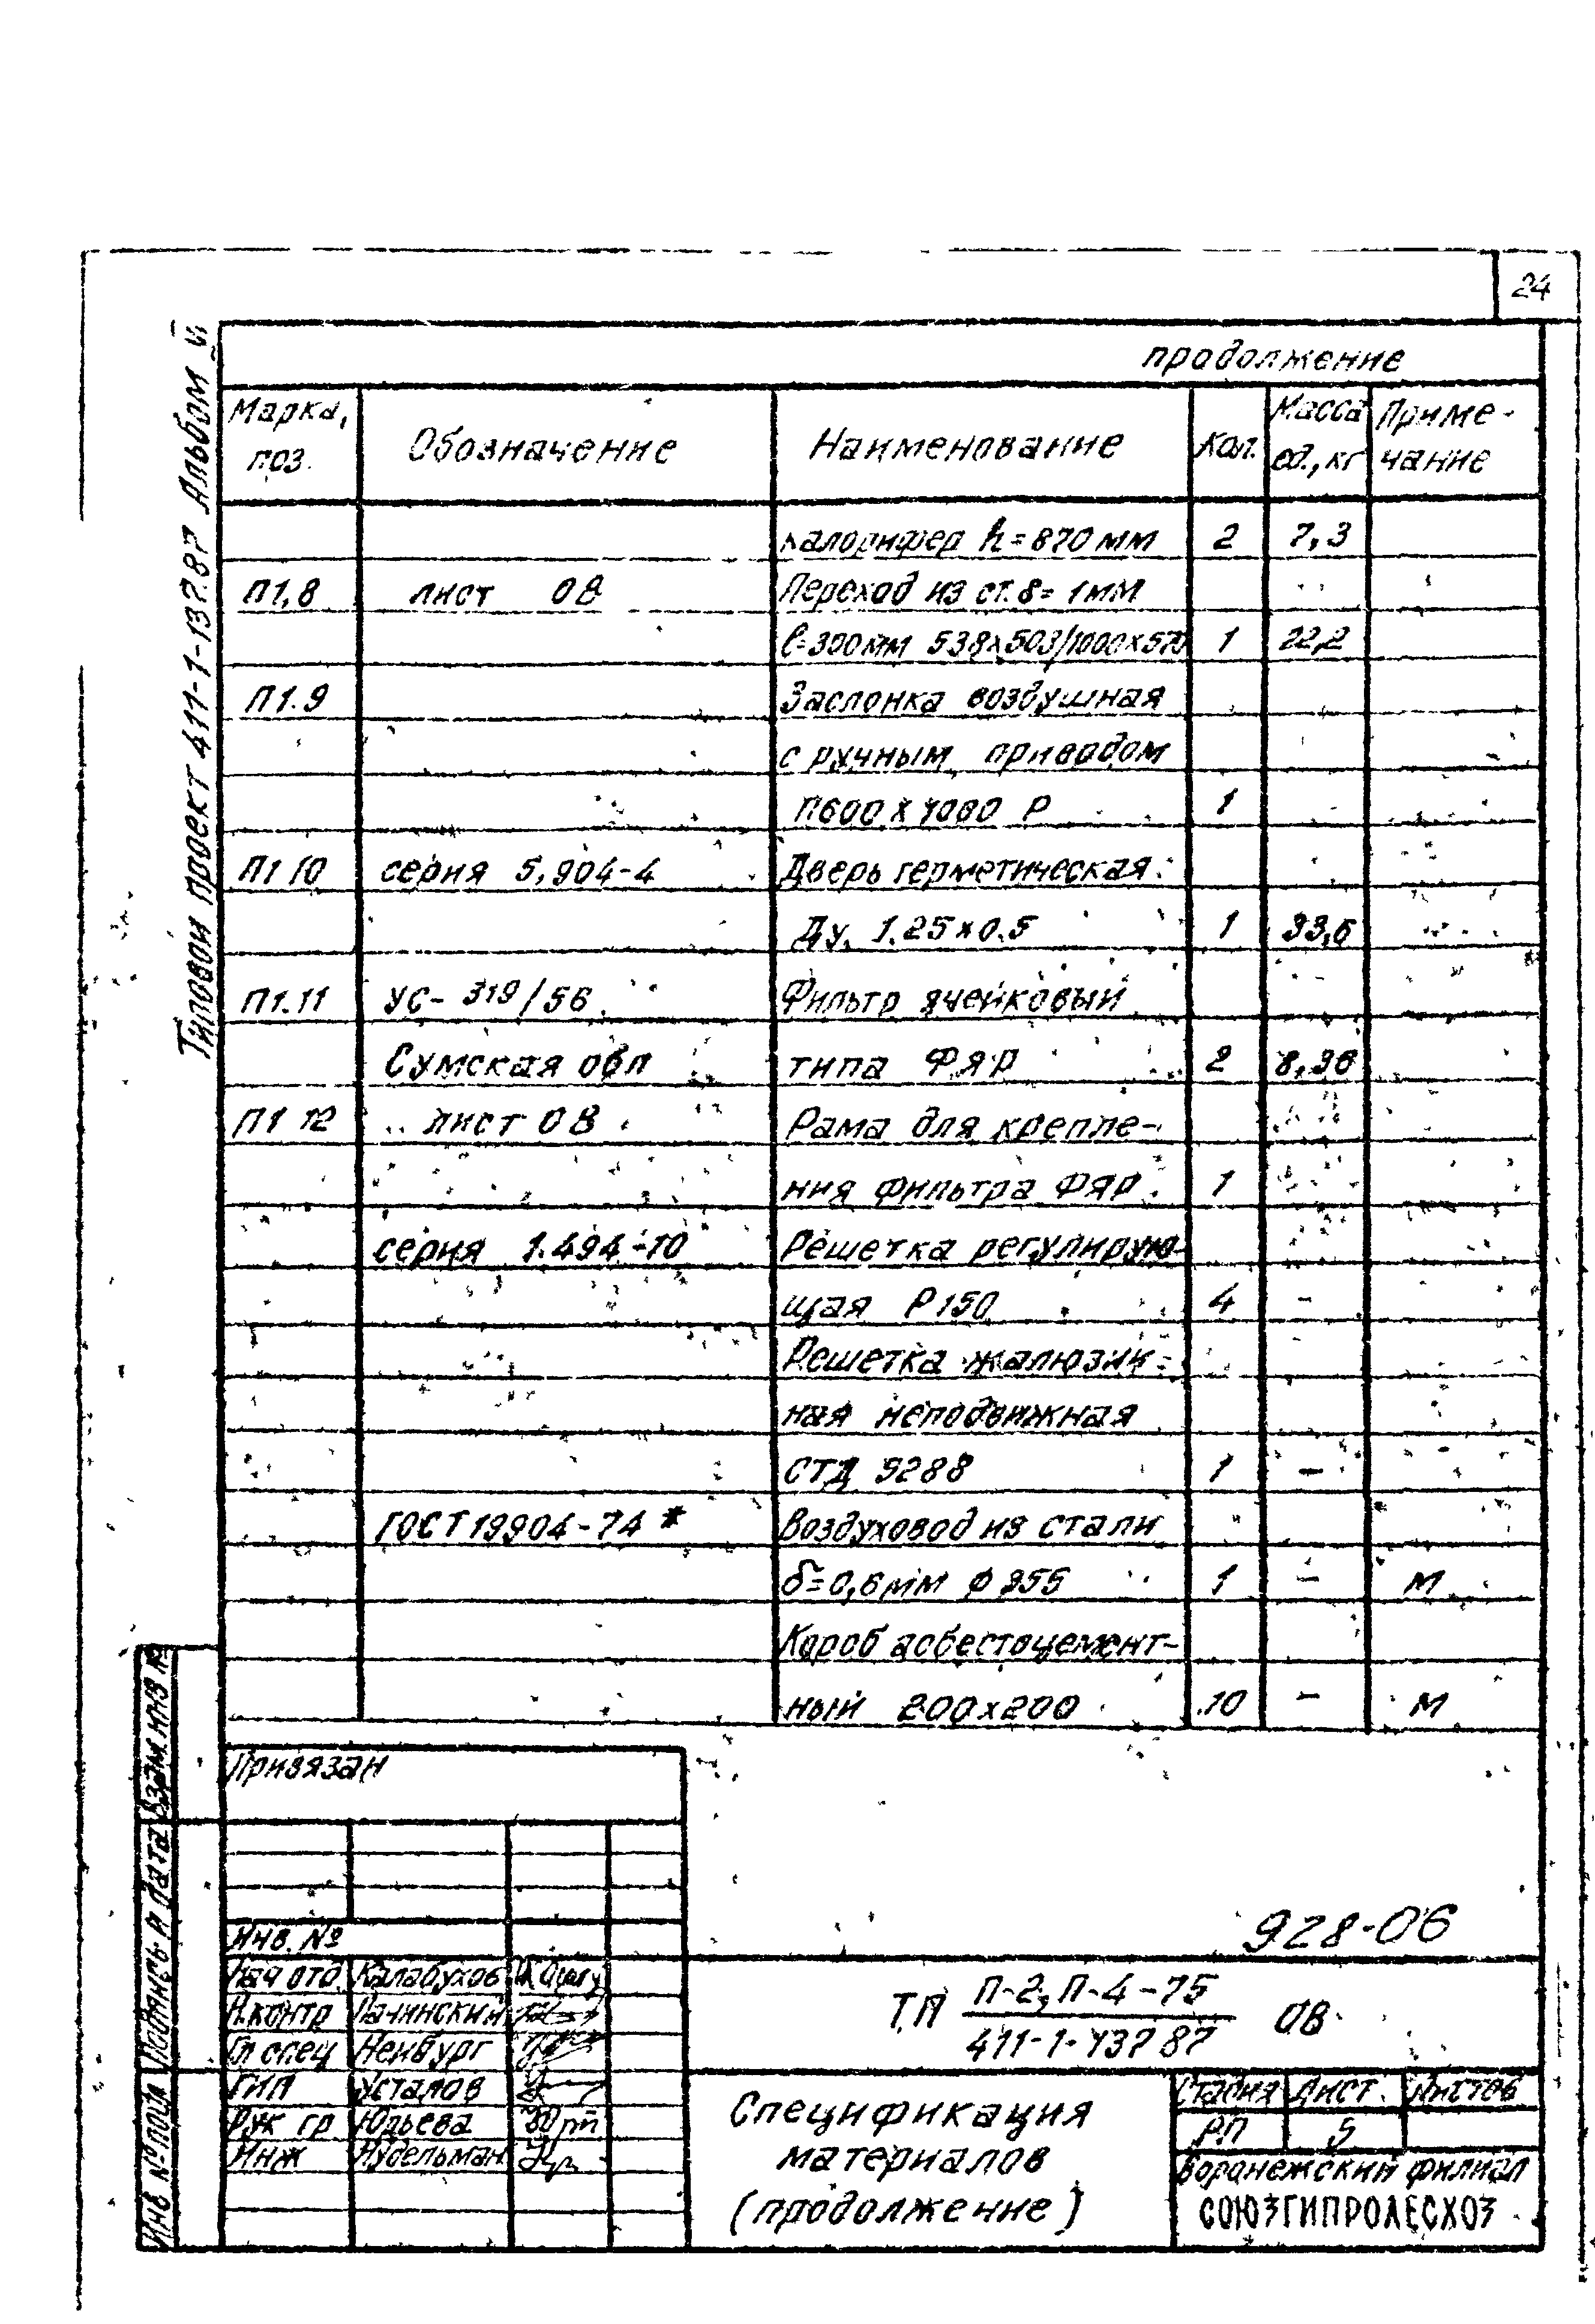 24
Типовой проект 411-1-137.87 Альбом
продолжение
Марка, поз. Обозначение Наименование Кол. Масса ед., кг Примечание
калорифер h=870мм 2 7,3
П1,8 лист ОВ Переход из ст. δ= 1мм
ℓ=300мм 538х503/1000х570 1 22,2
П1.9 Заслонка воздушная
с ручным приводом
П600х1000 Р 1
П1 10 серия 5,904-4 Дверь герметическая
Ду. 1.25х0.5 1 33,6
П1.11 УС- 319/56 Фильтр ячейковый
Сумская обл типа ФЯР 2 8,36
П1 12 лист ОВ Рама для крепле-
ния фильтра ФЯР 1
серия 1.494-10 Решетка регулирую-
щая Р150 4 -
Решетка жалюзий-
ная неподвижная
СТД 5288 1 -
ГОСТ 19904-74* Воздуховод из стали
δ=0,6мм ф 355 1 - м
Короб асбестоцемент-
ный 200х200 10 - м
Привязан
Инв. №
928-06
Нач отд. Калабухов
Н.контр Пачинский
Гл спец Ненбург
ГИП Усталов
Рук гр Юдьева
Инж Нудельман
ТП П-2, П-4-75 / 411-1-137 87 ОВ
Спецификация
материалов
(продолжение)
Стадия Лист Листов
РП 5
Воронежский филиал
СОЮЗГИПРОЛЕСХОЗ
Взам. инв №
Подпись и дата
Инв. № подл